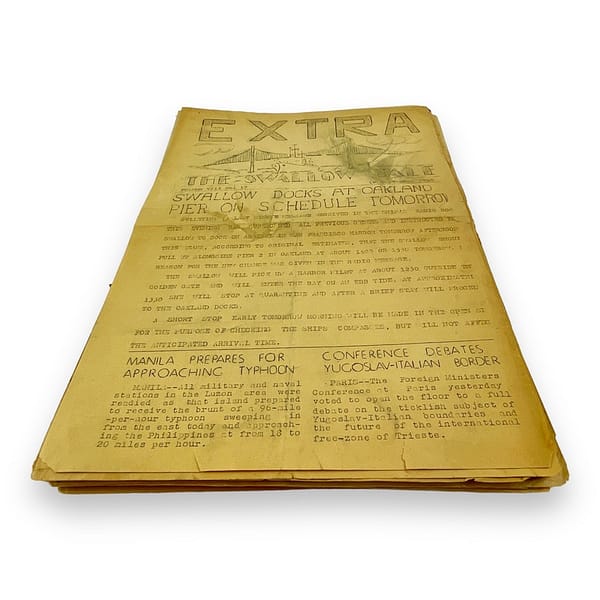 EXTRA
THE SWALLOW TALE
SWALLOW DOCKS AT OAKLAND
PIER ON SCHEDULE TOMORROW
RECEIVED IN THE SHIPS RADIO
THIS EVENING ALL PREVIOUS
SWALLOW TO DOCK IN SAN FRANCISCO HARBOR TOMORROW AFTERNOON
ACCORDING TO ORIGINAL ESTIMATES, THAT THE SWALLOW SHOULD
PULL UP ALONGSIDE PIER 2 IN OAKLAND AT ABOUT 1500 OR 1530 TOMORROW.
REASON FOR THE NEW CHANGE WAS GIVEN IN THE RADIO MESSAGE.
THE SWALLOW WILL PICK UP A HARBOR PILOT AT ABOUT 1230 OUTSIDE
GOLDEN GATE AND WILL ENTER THE BAY ON AN EBB TIDE, AT APPROXIMATELY
1330 SHE WILL STOP AT QUARANTINE AND AFTER A BRIEF STAY WILL PROCEED
TO THE OAKLAND DOCKS.
A SHORT STOP EARLY TOMORROW MORNING WILL BE MADE IN THE OPEN
FOR THE PURPOSE OF CHECKING THE SHIPS COMPASSES, BUT WILL NOT AFFECT
THE ANTICIPATED ARRIVAL TIME.
MANILA PREPARES FOR
APPROACHING TYPHOON
MANILA--All military and naval
stations in the Luzon area were
readied as that island prepared
to receive the brunt of a 96-mile
-per-hour typhoon sweeping in
from the east today and approach-
ing the Philippines at from 18 to
20 miles per hour.
CONFERENCE DEBATES
YUGOSLAV-ITALIAN BORDER
PARIS--The Foreign Ministers
Conference at Paris yesterday
voted to open the floor to a full
debate on the ticklish subject of
Yugoslav-Italian boundaries and
the future of the international
free-zone of Trieste.